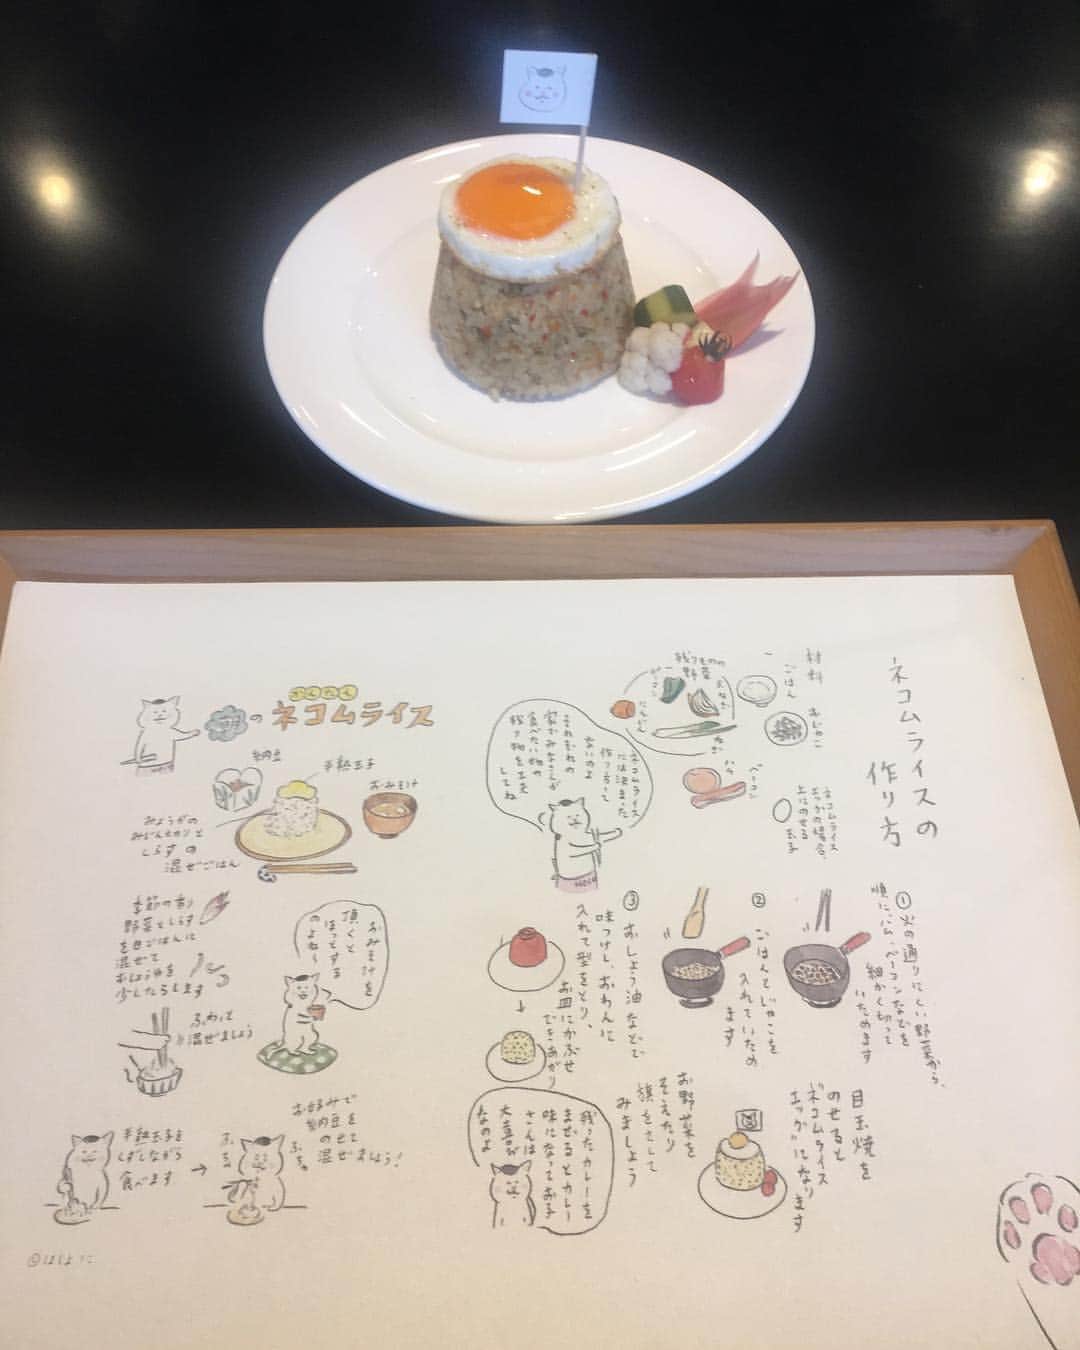 ネコムライスの
作り方
材料
ごはん
おじゃこ
残りものの
野菜
ピーマン
玉ねぎ
にんじん
ねぎ
ハム
ベーコン
ネコムライス
エッグの場合、
上にのせる
玉子
ネコムライス
には決まった
作り方って
ないのよ
それぞれの
家でみなさんが
食べたい物や
残り物を工夫
してね
① 火の通りにくい野菜から、
順に、ハム、ベーコンなどを
細かく切って
いためます
② ごはんとじゃこを
入れていため
ます
③ おしょう油などで
味つけし、おわんに
入れて型をとり、
お皿にかぶせ
できあがり
目玉焼を
のせると
"ネコムライス
エッグ"になります
お野菜を
そえたり
旗をさして
みましょう
残ったカレーを
まぜるとカレー
味になってお子
さんは
大喜び
なのよ
かんたん
のネコムライス
納豆
半熟玉子
おみそ汁
みょうがの
みじん切りと
しらすの
混ぜごはん
季節の香り
野菜としらす
を白ごはんに
混ぜて
おしょうゆを
少したらします
おみそ汁を
頂くと
ほっとする
のよね〜
ふわっと
混ぜましょう
半熟玉子を
くずしながら
食べます
お好みで
納豆を
のせて
混ぜましょう!